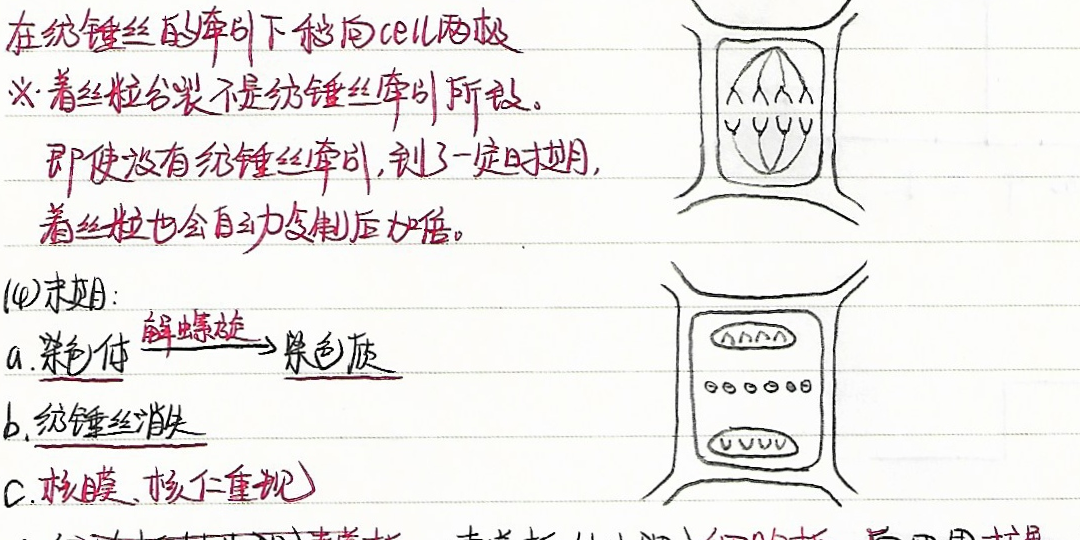 在纺锤丝的牵引下移向cell两极
※·着丝粒分裂不是纺锤丝牵引所致。
即使没有纺锤丝牵引,到了一定时期,
着丝粒也会自动复制后加倍。
(4)末期:
解螺旋
a.染色体 → 染色质
b.纺锤丝消失
c.核膜、核仁重现